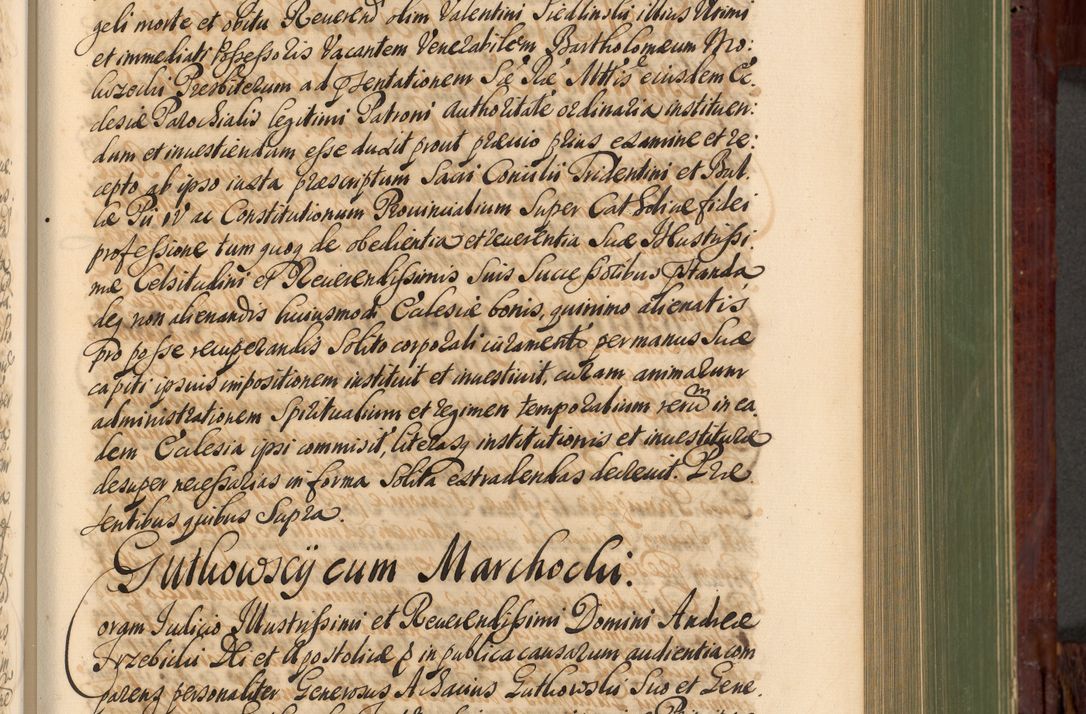 geli morte et obitu Reuerend olim Valentini Siedlinskii illius Vltimi
et immediati possessoris Vacantem Venerabilem Bartholomæum Mo:
Presbiterum ad pñtationem Sæ Ræ Mttis eiusdem Ec:
clesiæ Parochialis legitimi Patroni Authoritate ordinaria instituen:
dum et inuestiendum esse duxit prout præuio prius examine et re:
cepto ab ipso iuxta præscriptum Sacri Concilii Tridentini et Bul
læ Pii IV ac Constitutionum Prouincialium Super Catholicæ fidei
professione tum quoq de obedientia et reuerentia Suæ Illustrissi
mæ Celsitudini et Reuerendissimis Suis Successoribus præstanda
deq non alienandis huiusmodi Ecclesiæ bonis, quinimo alienatis
pro posse recuperandis Solito corporali iuramento per manus Suæ
capiti ipsius impositionem instituit et inuestiuit, curam animarum
administrationem Spiritualium et regimen temporalium rerũ in ea
dem Ecclesia ipsi commisit, literasq institutionis et inuestituræ
desuper necessarias in forma Solita extradendas decreuit. Præ
sentibus quibus Supra.
Guthowscÿ cum Marchocki.
Coram Iudicio Illustrissimi et Reuerendissimi Domini Andreæ
Trzebicki Dei et Apostolicæ in publica causarum audientia com
parens personaliter Generosus Achacius Guthowski Suo et Gene.